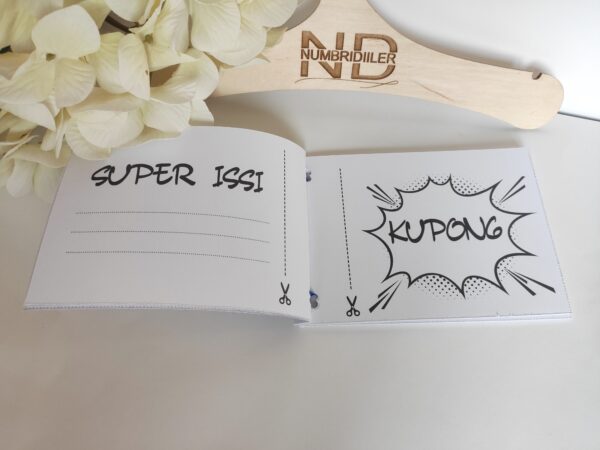 ND
NUMBRIDIILER
SUPER ISSI
KUPONG